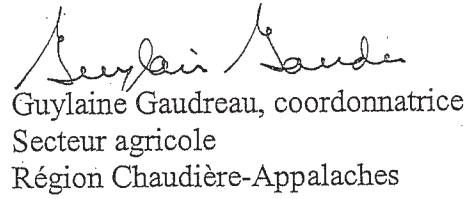 Guylaine Gaudreau, coordonnatrice
Secteur agricole
Région Chaudière-Appalaches